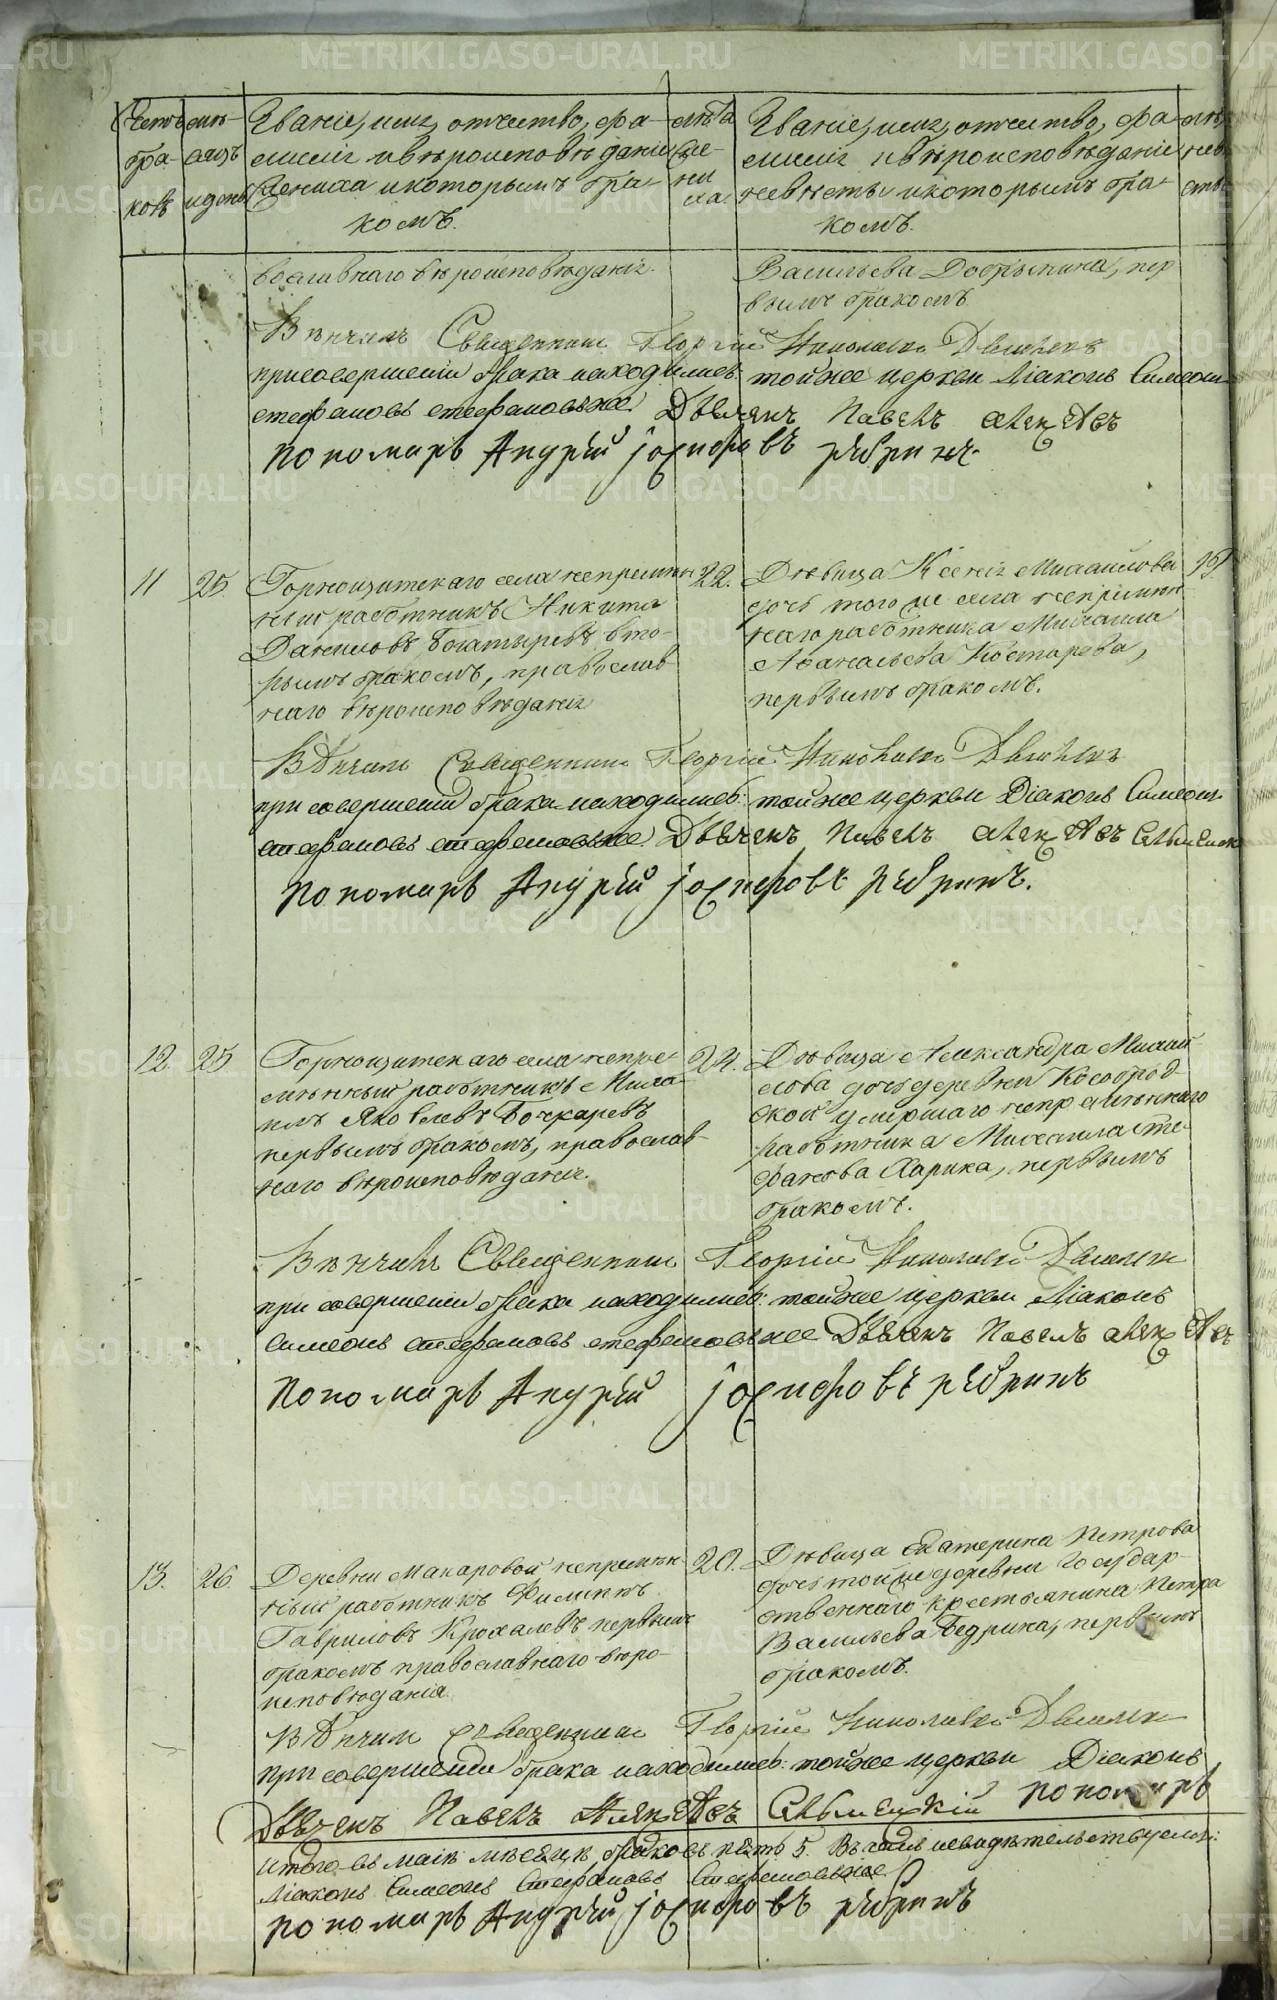 METRIKI.GASO-URAL.RU
Счетъ бра- ковъ
мѣ- сяцъ и день
Званіе, имя, отчество, фа-
милія и вѣроисповѣданіе
жениха и которымъ бра-
комъ.
лѣта же- ни ха.
Званіе, имя, отчество, фа
милія и вѣроисповѣданіе
невѣсты и которымъ бра-
комъ.
вославнаго вѣроисповѣданія.
Васильева Добрынина, пер
вымъ бракомъ
Вѣнчалъ Священникъ Георгій Николаевъ
при совершеніи брака находились: тойже церкви Діаконъ Симеонъ
Стефановъ Стефановъ же Дьячекъ Павелъ Алексѣевъ
пономарь Андрей Іосифовъ
11
25
Горнощитскаго села непремѣн
ный работникъ Никита
Даниловъ Богатыревъ вто-
рымъ бракомъ, православ
наго вѣроисповѣданія
22.
Дѣвица Ксенія Михайлова
дочь того же села непремѣн
наго работника Михаила
Аѳанасьева Костарева,
первымъ бракомъ.
19
Вѣнчалъ Священникъ Георгій Николаевъ
при совершеніи брака находились: тойже церкви Діаконъ Симеонъ
Стефановъ Стефановъ же Дьячекъ Павелъ Алексѣевъ
пономарь Андрей Іосифовъ
12.
25
Горнощитскаго села непре-
мѣнный работникъ Миха-
илъ Яковлевъ Бочкаревъ
первымъ бракомъ, православ-
наго вѣроисповѣданія.
24.
Дѣвица Александра Михай
лова дочь деревни Кособрод-
ской умершаго непремѣннаго
работника Михаила Сте-
фанова Ларика, первымъ
бракомъ.
Вѣнчалъ Священникъ Георгій Николаевъ
при совершеніи брака находились: тойже церкви Діаконъ
Симеонъ Стефановъ Стефановъ же Дьячекъ Павелъ Алексѣевъ
Пономарь Андрей Іосифовъ
13.
26.
Деревни Макаровой непремѣн
ный работникъ Филиппъ
Гавриловъ Крохалевъ первымъ
бракомъ православнаго вѣро-
исповѣданія
20.
Дѣвица Екатерина Петрова
дочь тойже деревни Государ-
ственнаго крестьянина Петра
Васильева Бедрина, первымъ
бракомъ.
Вѣнчалъ Священникъ Георгій Николаевъ
при совершеніи брака находились: тойже церкви Діаконъ
Дьячекъ Павелъ Алексѣевъ пономарь
Итого въ маіѣ мѣсяцѣ браковъ пять 5.
Діаконъ Симеонъ Стефановъ
пономарь Андрей Іосифовъ